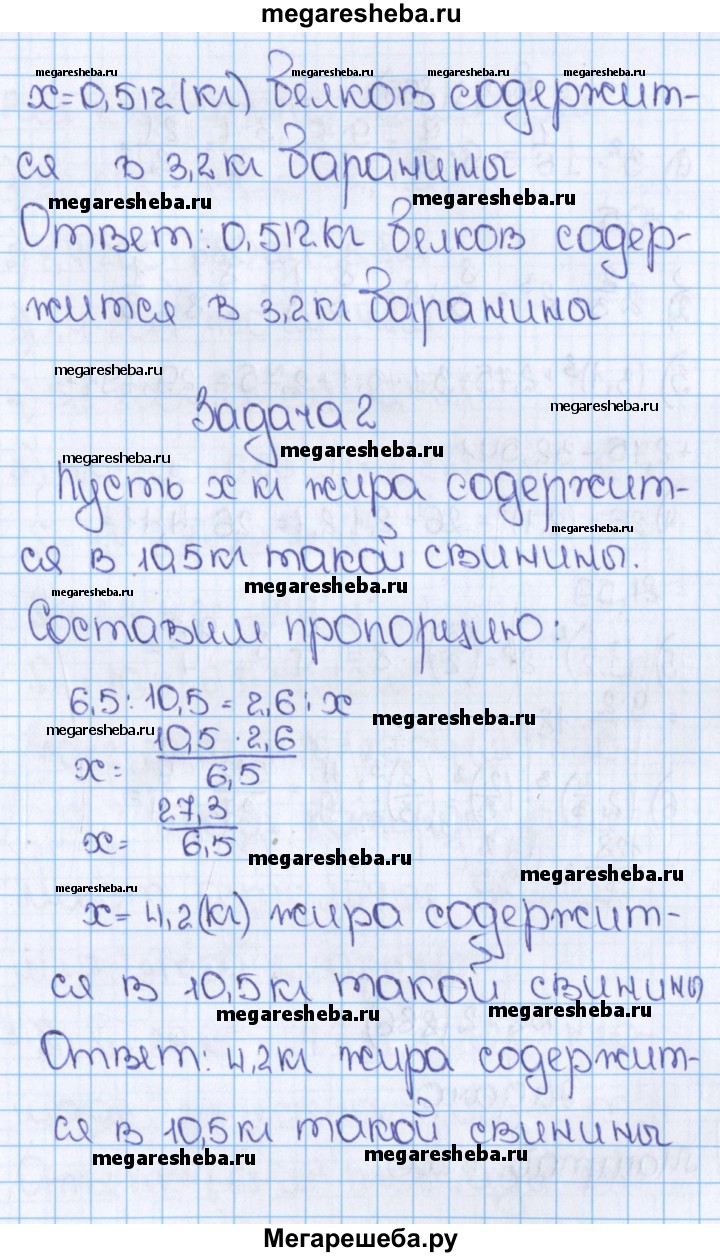 megaresheba.ru
megaresheba.ru megaresheba.ru megaresheba.ru megaresheba.ru
x=0,512(кг) белков содержит-
ся в 3,2кг баранины
megaresheba.ru megaresheba.ru
Ответ: 0,512кг белков содер-
жится в 3,2кг баранины
megaresheba.ru
megaresheba.ru
Задача 2
megaresheba.ru
megaresheba.ru
Пусть x кг жира содержит-
megaresheba.ru
ся в 10,5кг такой свинины.
megaresheba.ru megaresheba.ru
Составим пропорцию:
6,5:10,5=2,6:x
megaresheba.ru megaresheba.ru
x= 10,5·2,6
6,5
x= 27,3
6,5
megaresheba.ru
megaresheba.ru
megaresheba.ru
x=4,2(кг) жира содержит-
ся в 10,5кг такой свинины
megaresheba.ru megaresheba.ru
Ответ: 4,2кг жира содержит-
ся в 10,5кг такой свинины
megaresheba.ru megaresheba.ru
Мегарешеба.ру